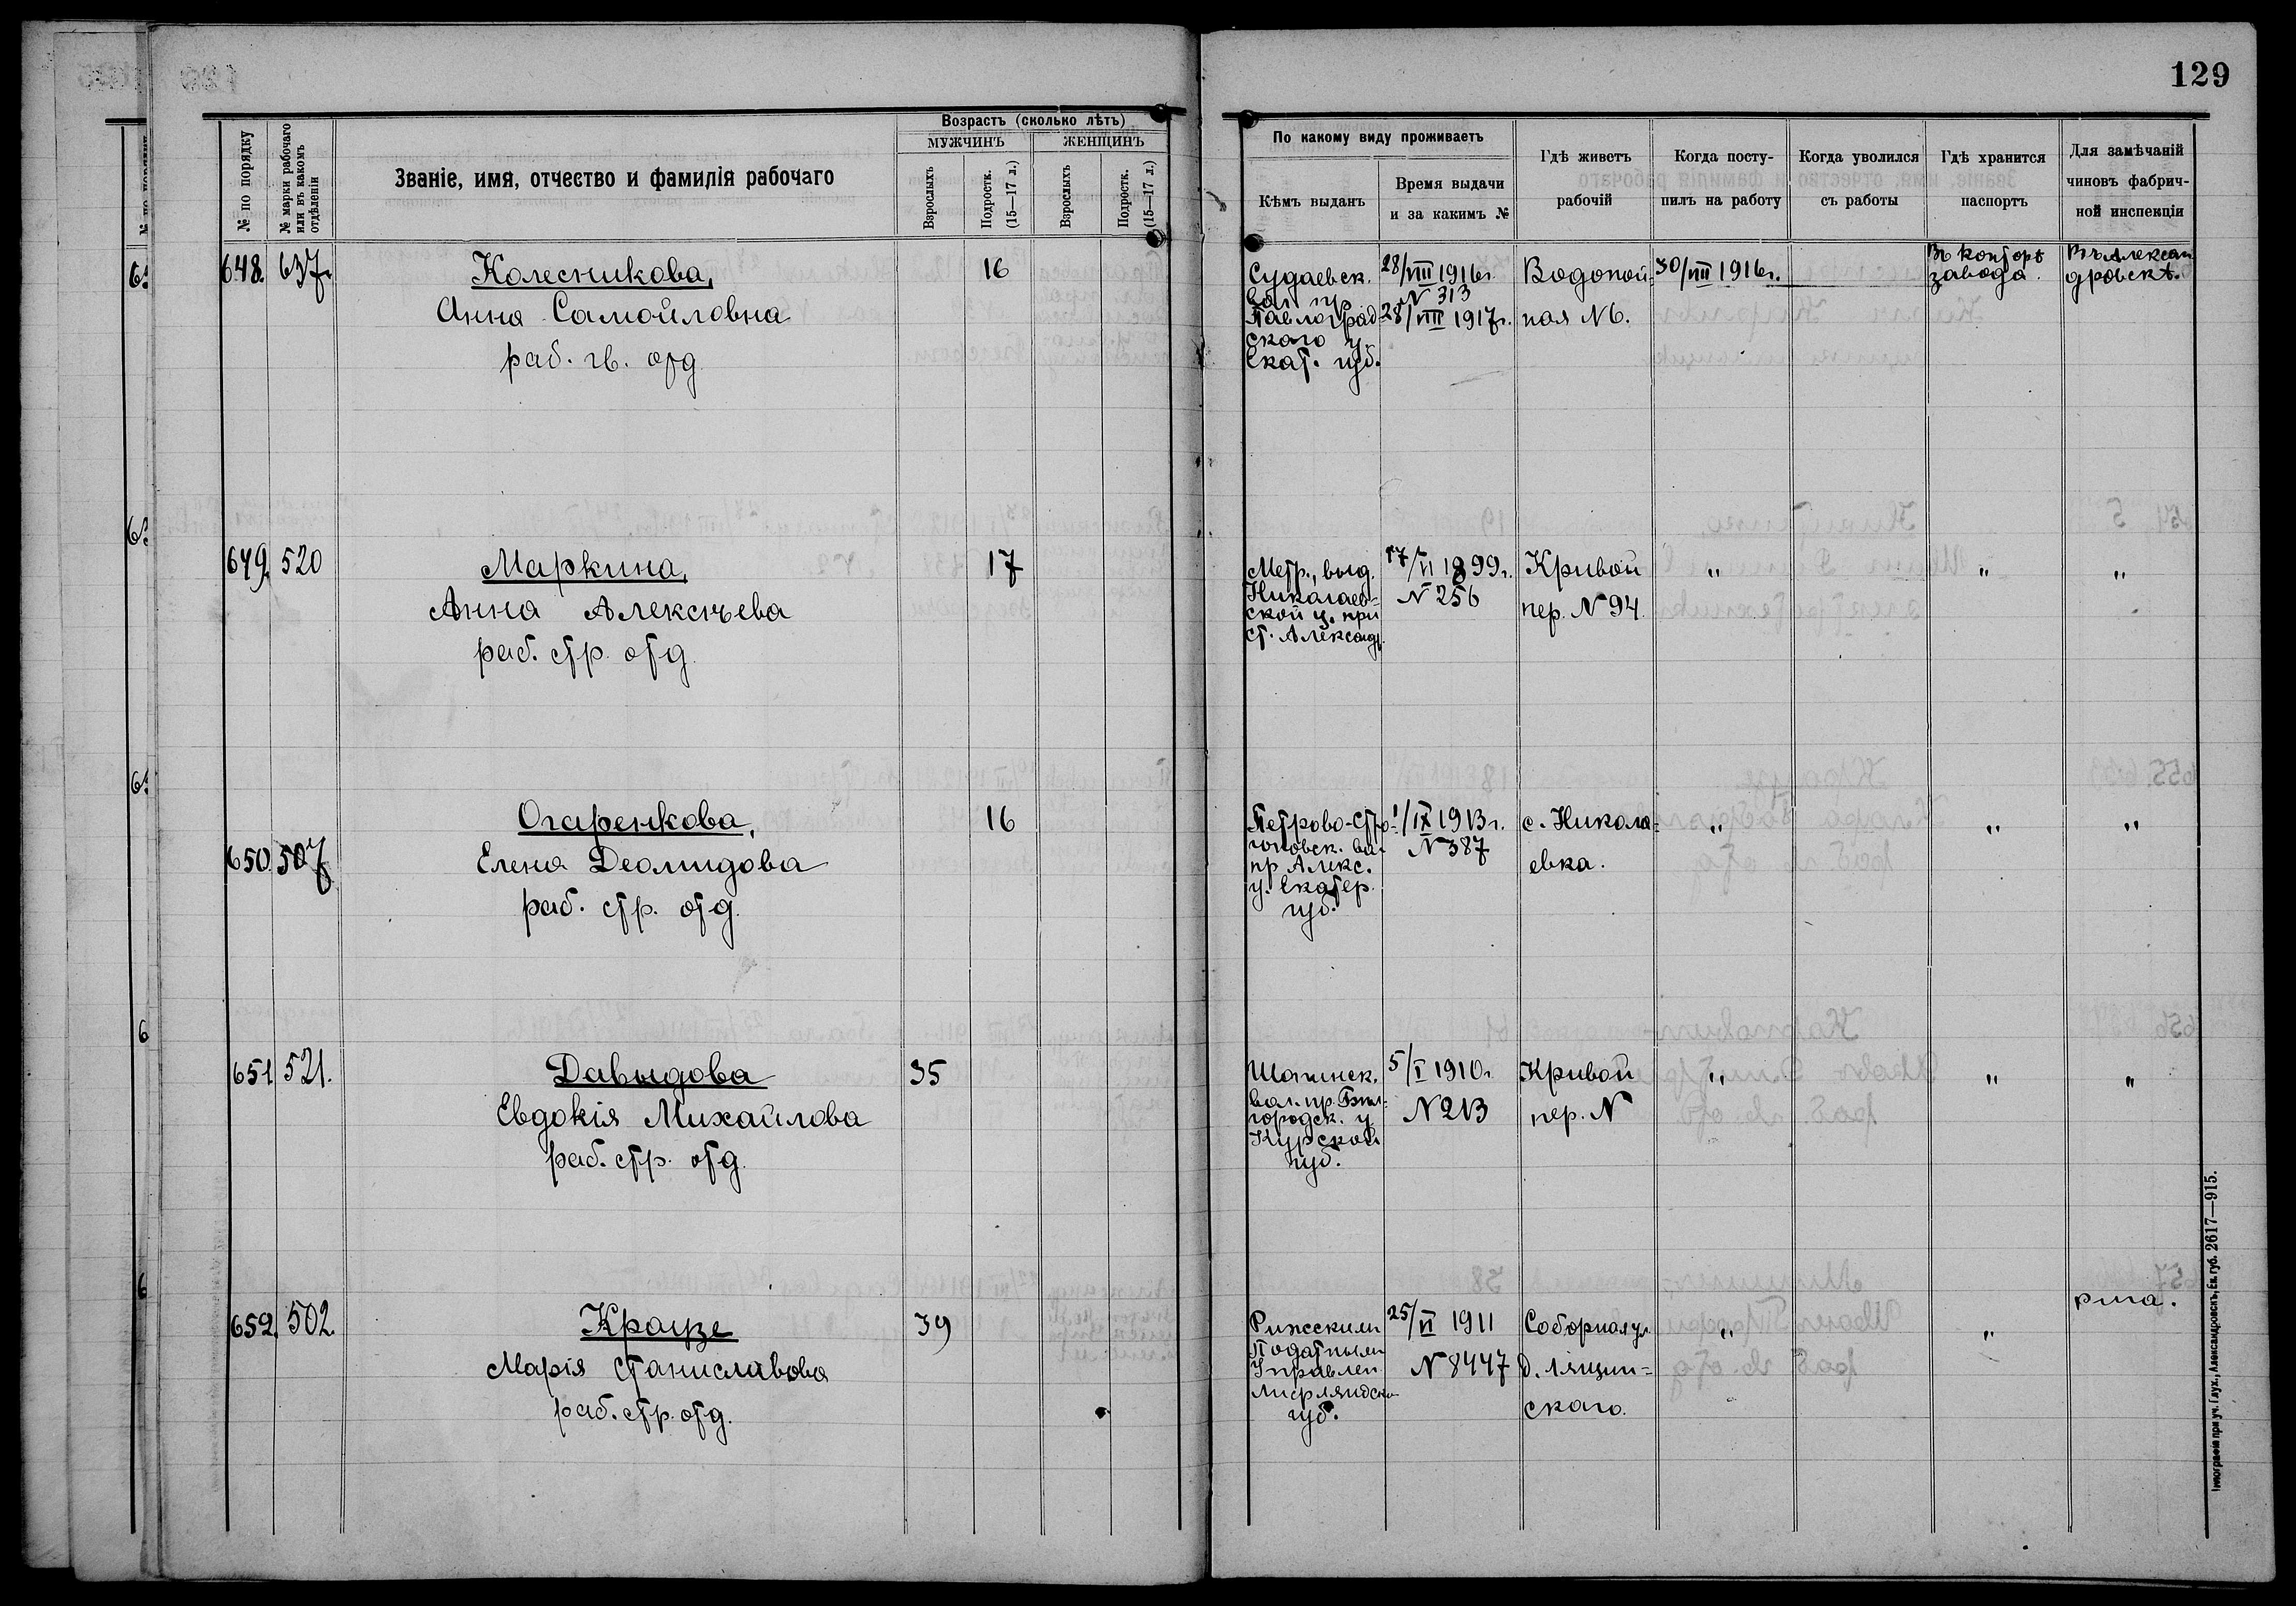 129
№ по порядку
№ марки рабочаго или въ какомъ отдѣленіи
Званіе, имя, отчество и фамилія рабочаго
Возрастъ (сколько лѣтъ)
МУЖЧИНЪ
ЖЕНЩИНЪ
Взрослыхъ
Подростк. (15—17 л.)
Взрослыхъ
Подростк. (15—17 л.)
По какому виду проживаетъ
Кѣмъ выданъ
Время выдачи
и за какимъ №
Гдѣ живетъ
рабочій
Когда посту-
пилъ на работу
Когда уволился
съ работы
Гдѣ хранится
паспортъ
Для замѣчаній
чиновъ фабрич-
ной инспекціи
648. 637.
Колесникова,
Анна Самойловна
раб. гв. отд
16
Судаевск.
вол. пр.
Павлоград-
скаго у.
Екат. губ.
28/VIII 1916г.
N 313
28/VIII 1917г.
Водопой-
ная N6.
30/VIII 1916г.
Въ конторѣ
завода.
Въ Алексан
дровскѣ.
649. 520
Маркина,
Анна Алексѣева
раб. стр. отд.
17
Метр., выд.
Николаев-
ской ц. при
ст. Александр.
17/VI 1899г.
N 256
Кривой
пер. N 94.
" " "
650. 507
Огаренкова,
Елена Деомидова
раб. стр. отд.
16
Петрово-
вол.
пр. Алекс.
у. Екатер.
губ.
1/IX 1913г.
N 387
с. Никола-
евка.
" " "
651 521.
Давыдова
Евдокія Михайлова
раб. стр. отд.
35
Шопинск.
вол. пр. Бѣл-
городск. у
Курской
губ.
5/I 1910г.
N 213
Кривой
пер. N
" " "
652. 502.
Краузе
Марія Станиславова
раб. стр. отд.
39
Рижскимъ
Податнымъ
Управлен.
Лифляндско
губ.
25/VI 1911
N 8447
Соборная ул
д. Лящин-
скаго.
" "
рига.
Типографія при уч. Глух., Александровскъ, Ек. губ. 2617—915.